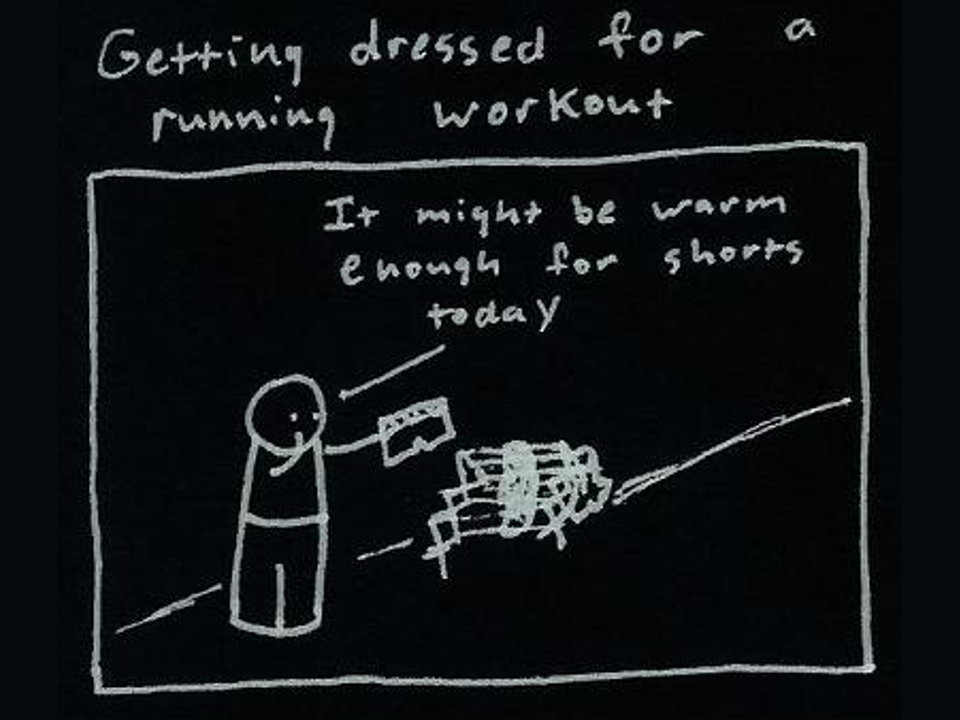 Getting dressed for a
running workout
It might be warm
enough for shorts
today